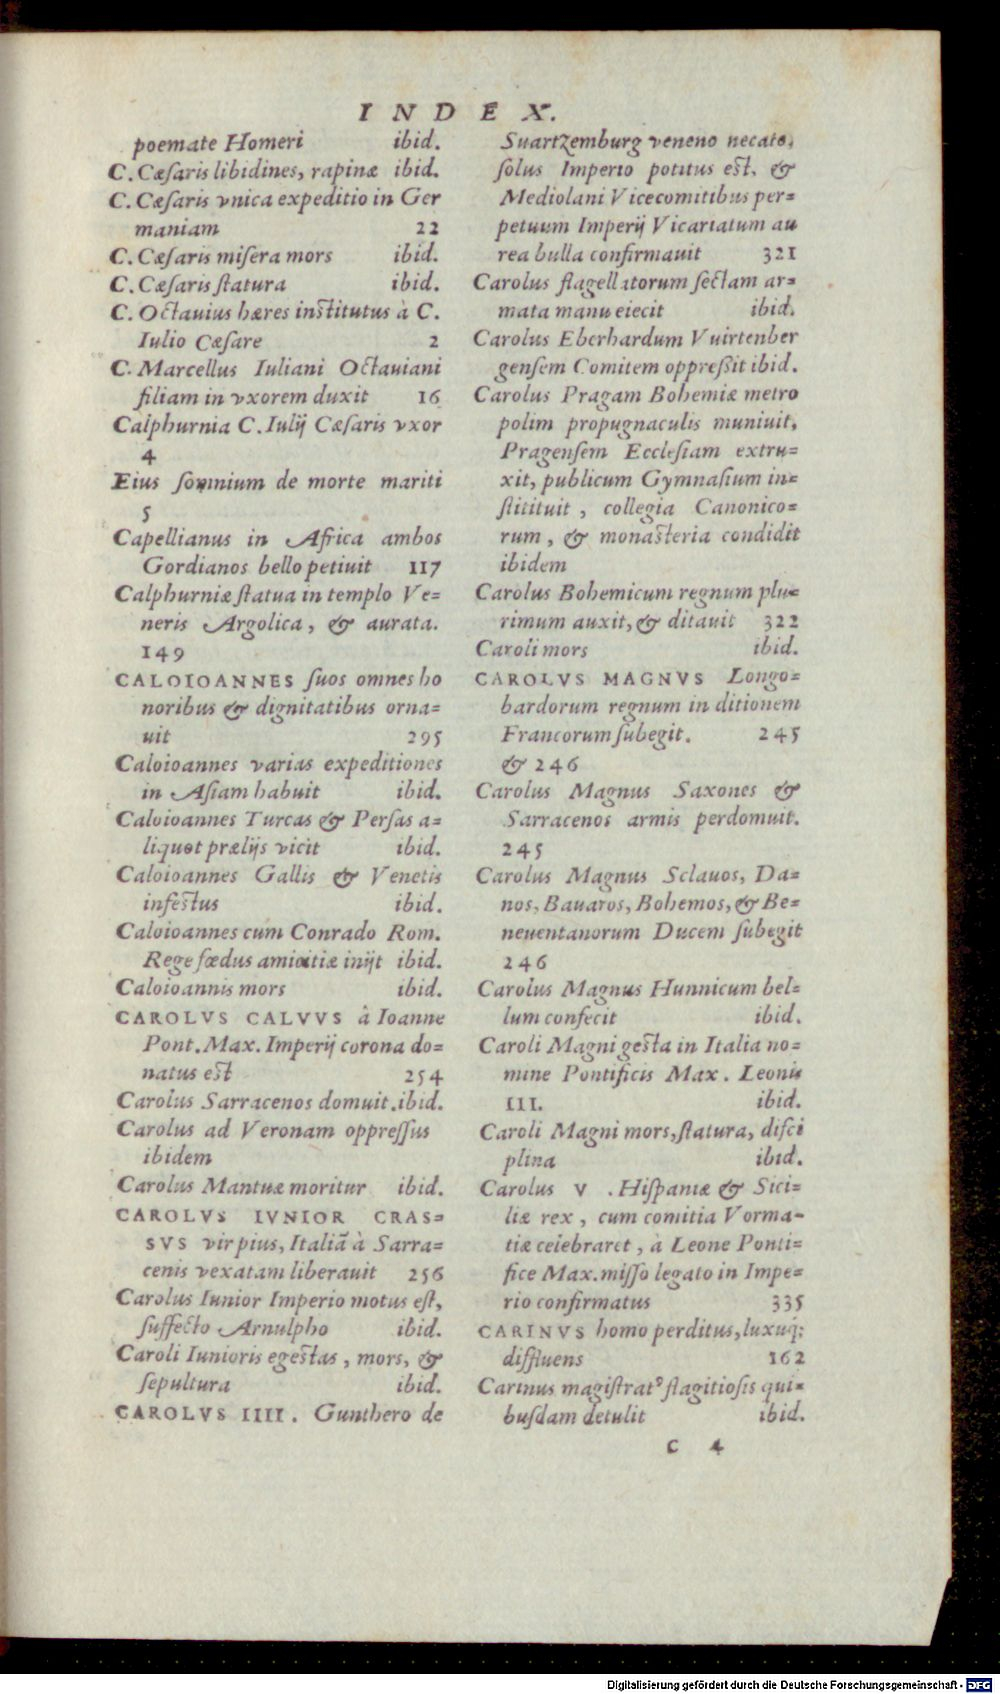 INDEX.
poemate Homeri ibid.
C. Cæſaris libidines, rapinæ ibid.
C. Cæſaris vnica expeditio in Ger
maniam 22
C. Cæſaris miſera mors ibid.
C. Cæſaris ſtatura ibid.
C. Octauius hæres inſtitutus à C.
Iulio Cæſare 2
C. Marcellus Iuliani Octauiani
filiam in vxorem duxit 16
Calphurnia C. Iulij Cæſaris vxor
4
Eius ſomnium de morte mariti
5
Capellianus in Africa ambos
Gordianos bello petiuit 117
Calphurniæ ſtatua in templo Ve=
neris Argolica, & aurata.
149
CALOIOANNES ſuos omnes ho
noribus & dignitatibus orna=
uit 295
Caloioannes varias expeditiones
in Aſiam habuit ibid.
Caloioannes Turcas & Perſas a=
liquot prælijs vicit ibid.
Caloioannes Gallis & Venetis
infeſtus ibid.
Caloioannes cum Conrado Rom.
Rege fœdus amicitiæ inijt ibid.
Caloioannis mors ibid.
CAROLVS CALVVS à Ioanne
Pont. Max. Imperij corona do=
natus eſt 254
Carolus Sarracenos domuit. ibid.
Carolus ad Veronam oppreſſus
ibidem
Carolus Mantuæ moritur ibid.
CAROLVS IVNIOR CRAS=
SVS vir pius, Italiã à Sarra=
cenis vexatam liberauit 256
Carolus Iunior Imperio motus eſt,
ſuffecto Arnulpho ibid.
Caroli Iunioris egeſtas, mors, &
ſepultura ibid.
CAROLVS IIII. Gunthero de
Suartzemburg veneno necato,
ſolus Imperio potitus eſt, &
Mediolani Vicecomitibus per=
petuum Imperij Vicariatum au
rea bulla confirmauit 321
Carolus flagellatorum ſectam ar=
mata manu eiecit ibid.
Carolus Eberhardum Vuirtenber
genſem Comitem oppreßit ibid.
Carolus Pragam Bohemiæ metro
polim propugnaculis muniuit,
Pragenſem Eccleſiam extru=
xit, publicum Gymnaſium in=
ſtitituit, collegia Canonico=
rum, & monaſteria condidit
ibidem
Carolus Bohemicum regnum plu=
rimum auxit, & ditauit 322
Caroli mors ibid.
CAROLVS MAGNVS Longo=
bardorum regnum in ditionem
Francorum ſubegit. 245
& 246
Carolus Magnus Saxones &
Sarracenos armis perdomuit.
245
Carolus Magnus Sclauos, Da=
nos, Bauaros, Bohemos, & Be=
neuentanorum Ducem ſubegit
246
Carolus Magnus Hunnicum bel=
lum confecit ibid.
Caroli Magni geſta in Italia no=
mine Pontificis Max. Leonis
III. ibid.
Caroli Magni mors, ſtatura, diſci
plina ibid.
Carolus V. Hiſpaniæ & Sici=
liæ rex, cum comitia Vorma=
tiæ celebraret, à Leone Ponti=
fice Max. miſſo legato in Impe=
rio confirmatus 335
CARINVS homo perditus, luxuq́;
diffluens 162
Carinus magiſtratꝰ flagitioſis qui=
buſdam detulit ibid.
C 4
Digitalisierung gefördert durch die Deutsche Forschungsgemeinschaft - DFG